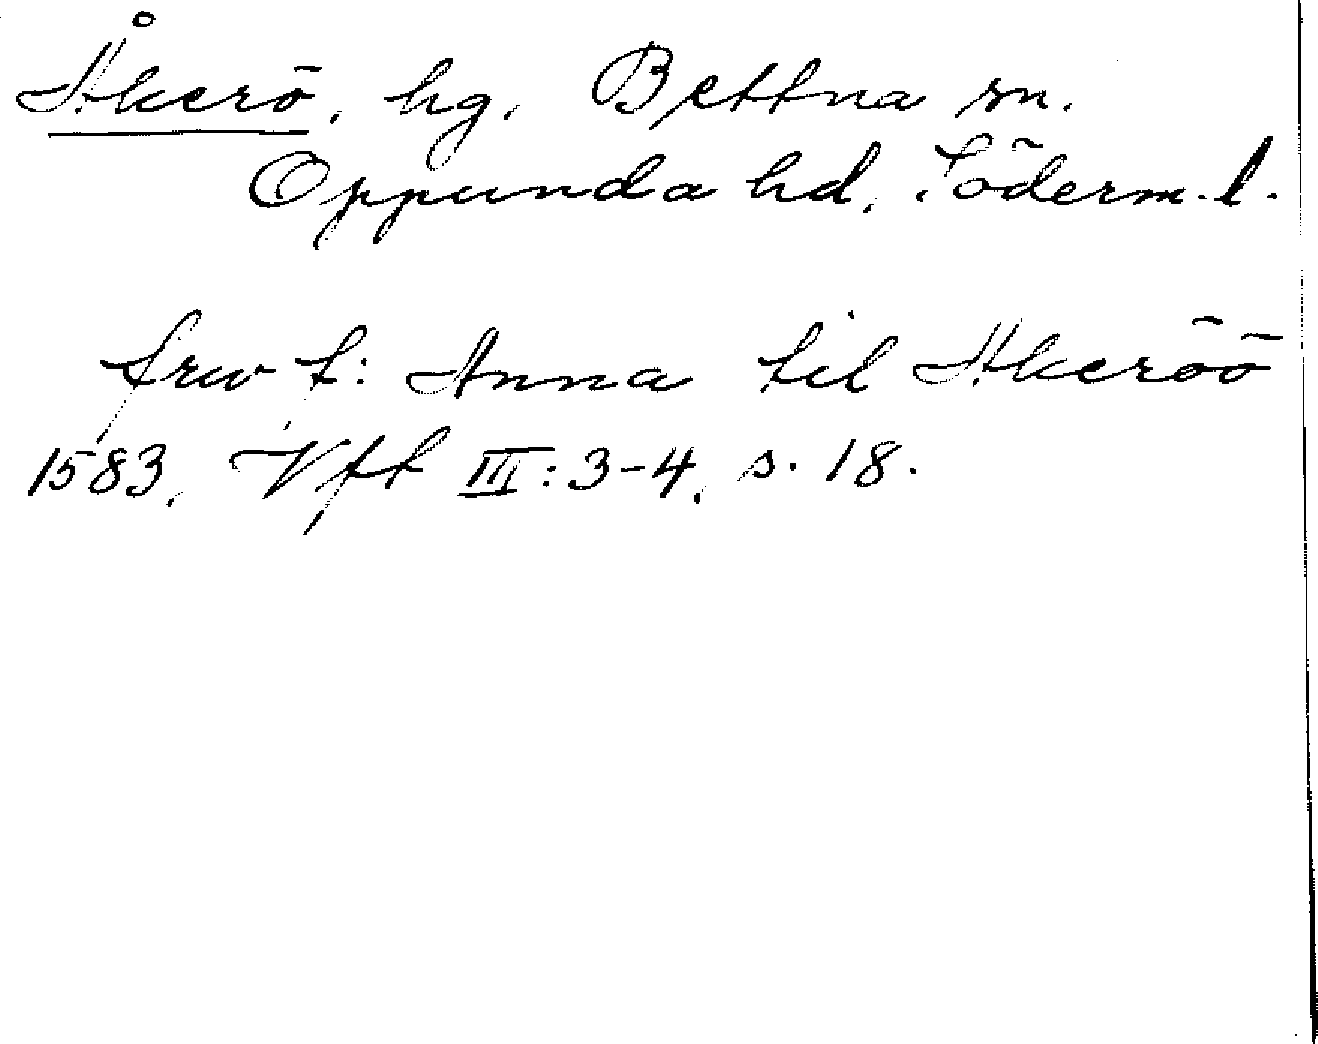 Åkerö, hg, Bettna sn.
Oppunda hd, Söderm.l.
frw f: Anna til Akeröö
1583, Vft III:3-4, s. 18.